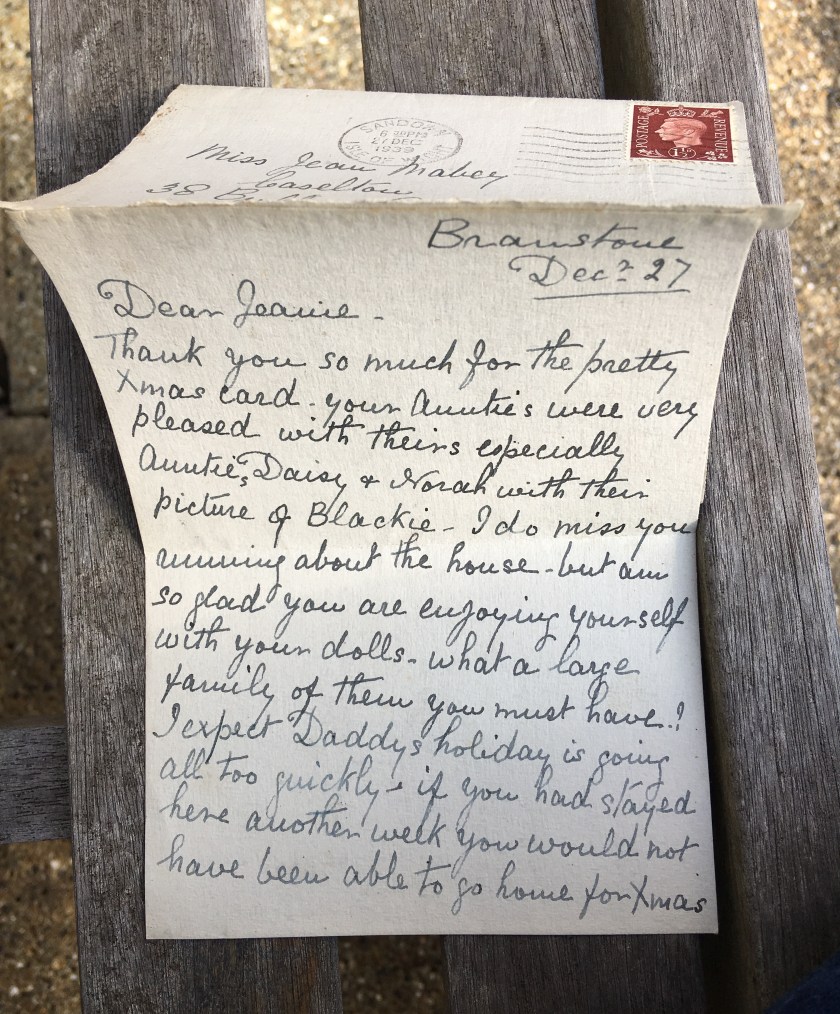 SANDOWN
6 30PM
27 DEC
1939
ISLE OF WIGHT
POSTAGE
REVENUE
1½D
Miss Jean Mabey
Caselton
38
Branstone
Decr 27
Dear Jeanie -
Thank you so much for the pretty
Xmas card - your Aunties were very
pleased with theirs especially
Auntie,s Daisy & Norah with their
picture of Blackie - I do miss you
running about the house - but am
so glad you are enjoying yourself
with your dolls - what a large
family of them you must have.!
I expect Daddys holiday is going
all too quickly - if you had stayed
here another week you would not
have been able to go home for Xmas